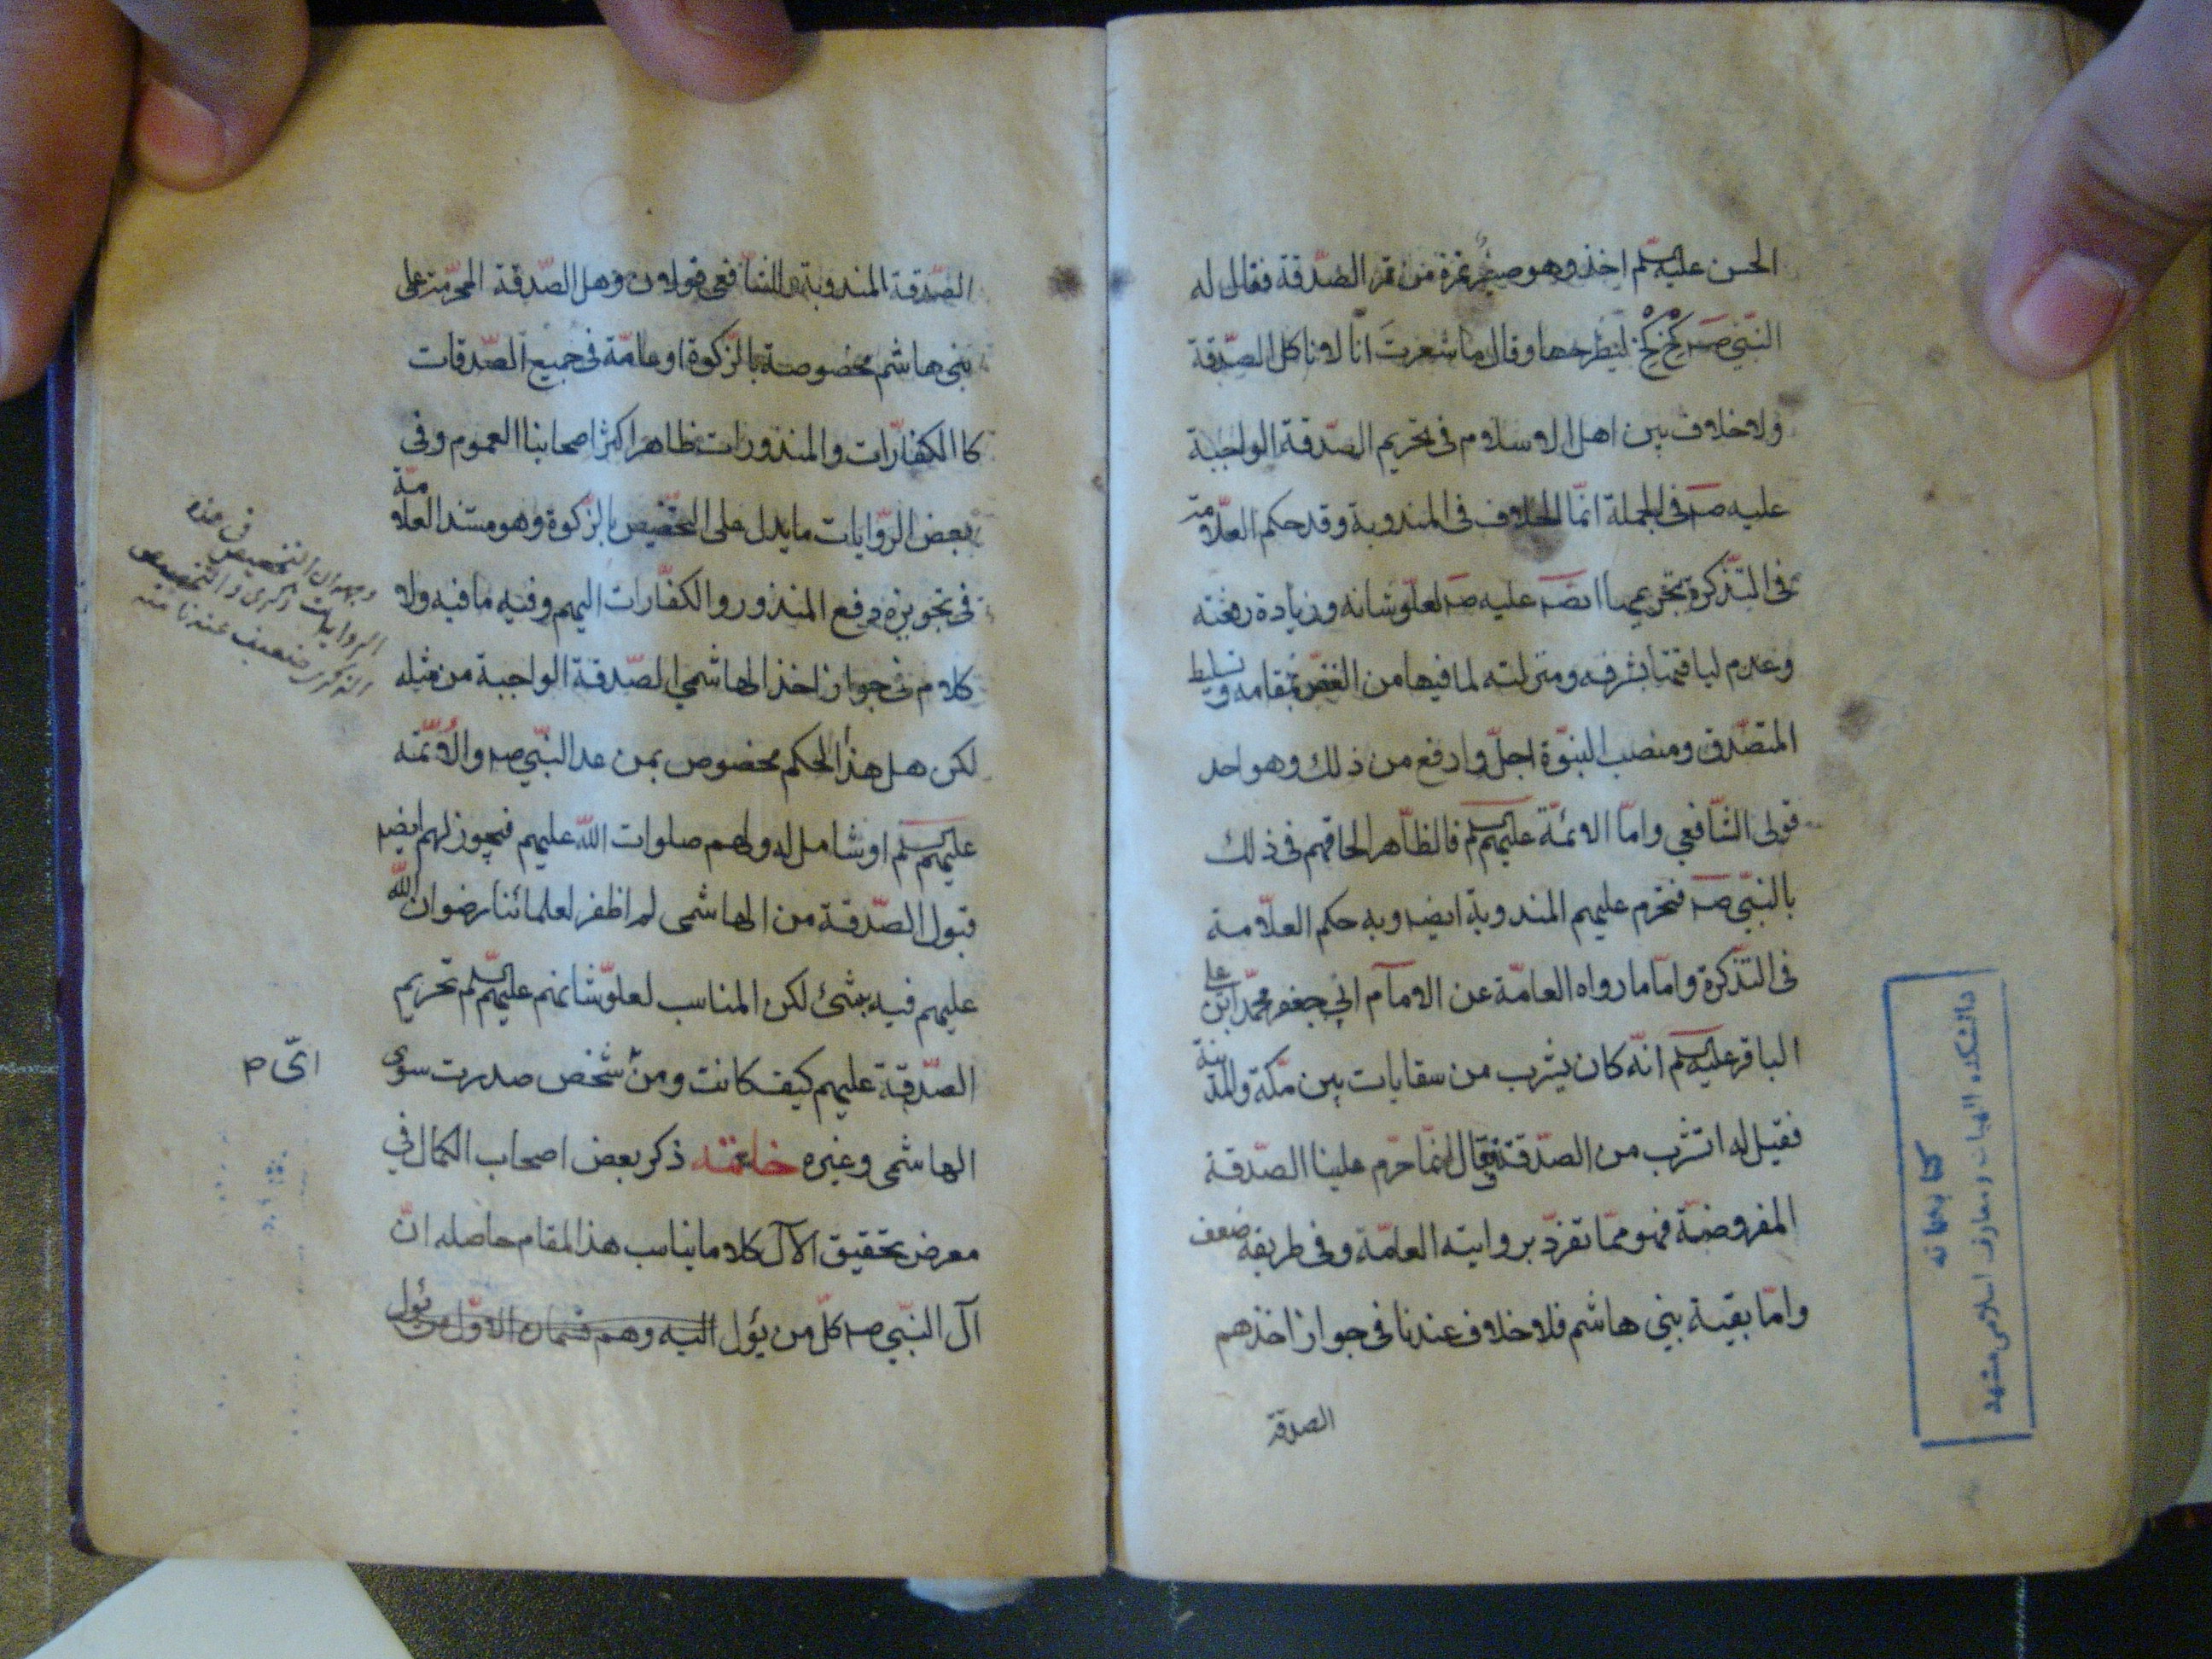 الحسن عليه السلم اخذ وهو صغير تمرة من تمر الصّدقة فقال له
النّبي صـ كِخْ كِخْ ليطرحها وقال ما شعرتَ انّا لا ناكل الصّدقة
ولا خلاف بين اهل الاسلام فى تحريم الصّدقة الواجبة
عليه صـ فى الجملة انّما الخلاف فى المندوبة وقد حكم العلّامة
فى التّذكرة بتحريمها ايضـ عليه صـ لعلوّ شانه وزيادة رفعته
وعدم لياقتها بشرفه ومنزلته لما فيها من الغضّ بمقامه وتسليط
المتصّدق ومنصب النبوّة اجلّ وارفع من ذلك وهو احد
قولى الشّافعي وامّا الائمّة عليهم السلم فالظّاهر الحاقهم فى ذلك
بالنبّي صـ فتحرم عليهم المندوبة ايضـ وبه حكم العلّامة
فى التّذكرة وامّا ما رواه العامّة عن الامام ابي جعفر محمّد ابن على
الباقر عليه السلم انّه كان يشرب من سقايات بين مكّة والمدينة
فقيل له اتشرب من الصّدقة فقال انّما حرّم علينا الصّدقة
المفروضة فهو ممّا تفرّد بروايته العامّة وفى طريقه ضعف
وامّا بقية بني هاشم فلا خلاف عندنا فى جواز اخذهم
الصدقة
كتابخانه
دانشكده الهيات و معارف اسلامى مشهد
الصّدقة المندوبة وللشّافعى قولان وهل الصّدقة المحرّمة على
بنى هاشم مخصوصة بالزّكوة او عامّة فى جميع الصّدقات
كالكفّارات والمنذورات ظاهر اكثر اصحابنا العموم وفى
بعض الرّوايات ما يدل على التخصيص بالزّكوة وهو مستند العلامّة
فى تجويزه دفع المنذور والكفّارات اليهم وفيه ما فيه ولا
كلام فى جواز اخذ الهاشمي الصّدقة الواجبة من مثله
لكن هل هذا الحكم مخصوص بمن عدا النّبّي صـ والائمّة
عليهم السلم او شامل له ولهم صلوات اللّه عليهم فيجوز لهم ايضـ
قبول الصّدقة من الهاشمى لم اظفر لعلمائنا رضوان اللّه
عليهم فيه بشئ لكن المناسب لعلوّ شانهم عليهم السلم تحريم
الصّدقة عليهم كيف كانت ومن شخص صدرت سوى
اىّ م
الهاشمى وغيره خاتمة ذكر بعض اصحاب الكمال في
معرض تحقيق الآل كلاما يناسب هذا المقام حاصله انّ
آل النّبّي صـ كلّ من يئول اليه وهم قسمان الاوّل من يئول
فى هذه
وجهه ان التخصيص
الروايات ذكرى والتخصيص
الذكرى ضعيف عندنا منه